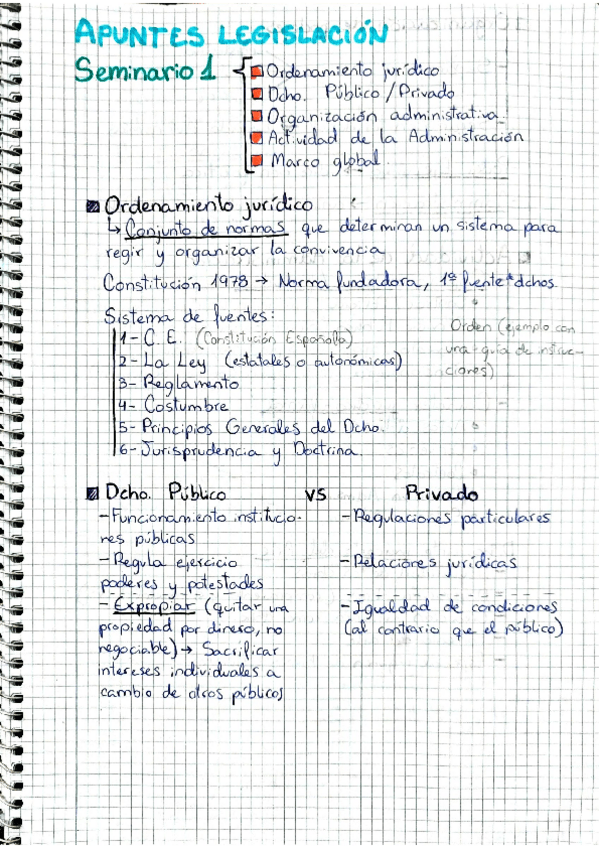 APUNTES LEGISLACIÓN
Seminario 1
Ordenamiento jurídico
Dcho. Público / Privado
Organización administrativa
Actividad de la Administración
Marco global
Ordenamiento jurídico
↳ Conjunto de normas que determinan un sistema para
regir y organizar la convivencia
Constitución 1978 → Norma fundadora, 1ª fuente * dchos.
Sistema de fuentes:
1- C. E. (Constitución Española)
2- La Ley (estatales o autonómicas)
3- Reglamento
4- Costumbre
5- Principios Generales del Dcho.
6- Jurisprudencia y Doctrina.
Orden (ejemplo con
una guía de instruc-
ciones)
Dcho. Público vs Privado
- Funcionamiento institucio-
nes públicas
- Regula ejercicio
poderes y potestades
- Expropiar (quitar una
propiedad por dinero, no
negociable) → Sacrificar
intereses individuales a
cambio de otros públicos
- Regulaciones particulares
- Relaciones jurídicas
- Igualdad de condiciones
(al contrario que el público)